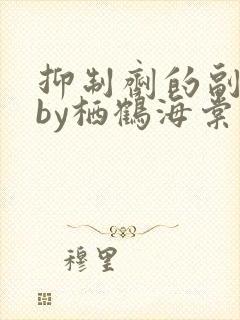 抑制剂的副
by栖鹤海棠
穆里